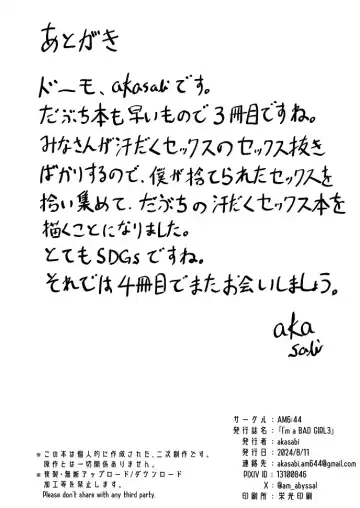 あとがき
ドーモ、akasabiです。
だぶち本も早いもので3冊目ですね。
みなさんが汗だくセックスのセックス抜き
ばかりするので、僕が捨てられたセックスを
拾い集めて、だぶちの汗だくセックス本を
描くことになりました。
とてもSDGsですね。
それでは4冊目でまたお会いしましょう。
aka
sabi
サークル : AM6:44
発行誌名 : 「I'm a BAD GIRL3」
発行者 : akasabi
発行日 : 2024/8/11
連絡先 : akasabi.am644@gmail.com
PIXIV ID : 13100846
X : @am_abyssal
印刷所 : 栄光印刷
※この本は個人的に作成された、二次創作です。
原作とは一切関係ありません。
※複製・無断アップロード/ダウンロード
加工等を禁止します。
Please don't share with any third party.